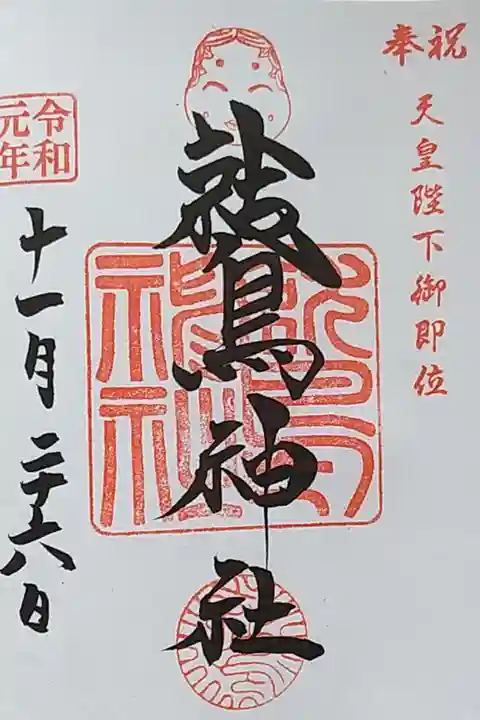 奉祝
天皇陛下御即位
鷲神社
令和
元年
十一月二十六日